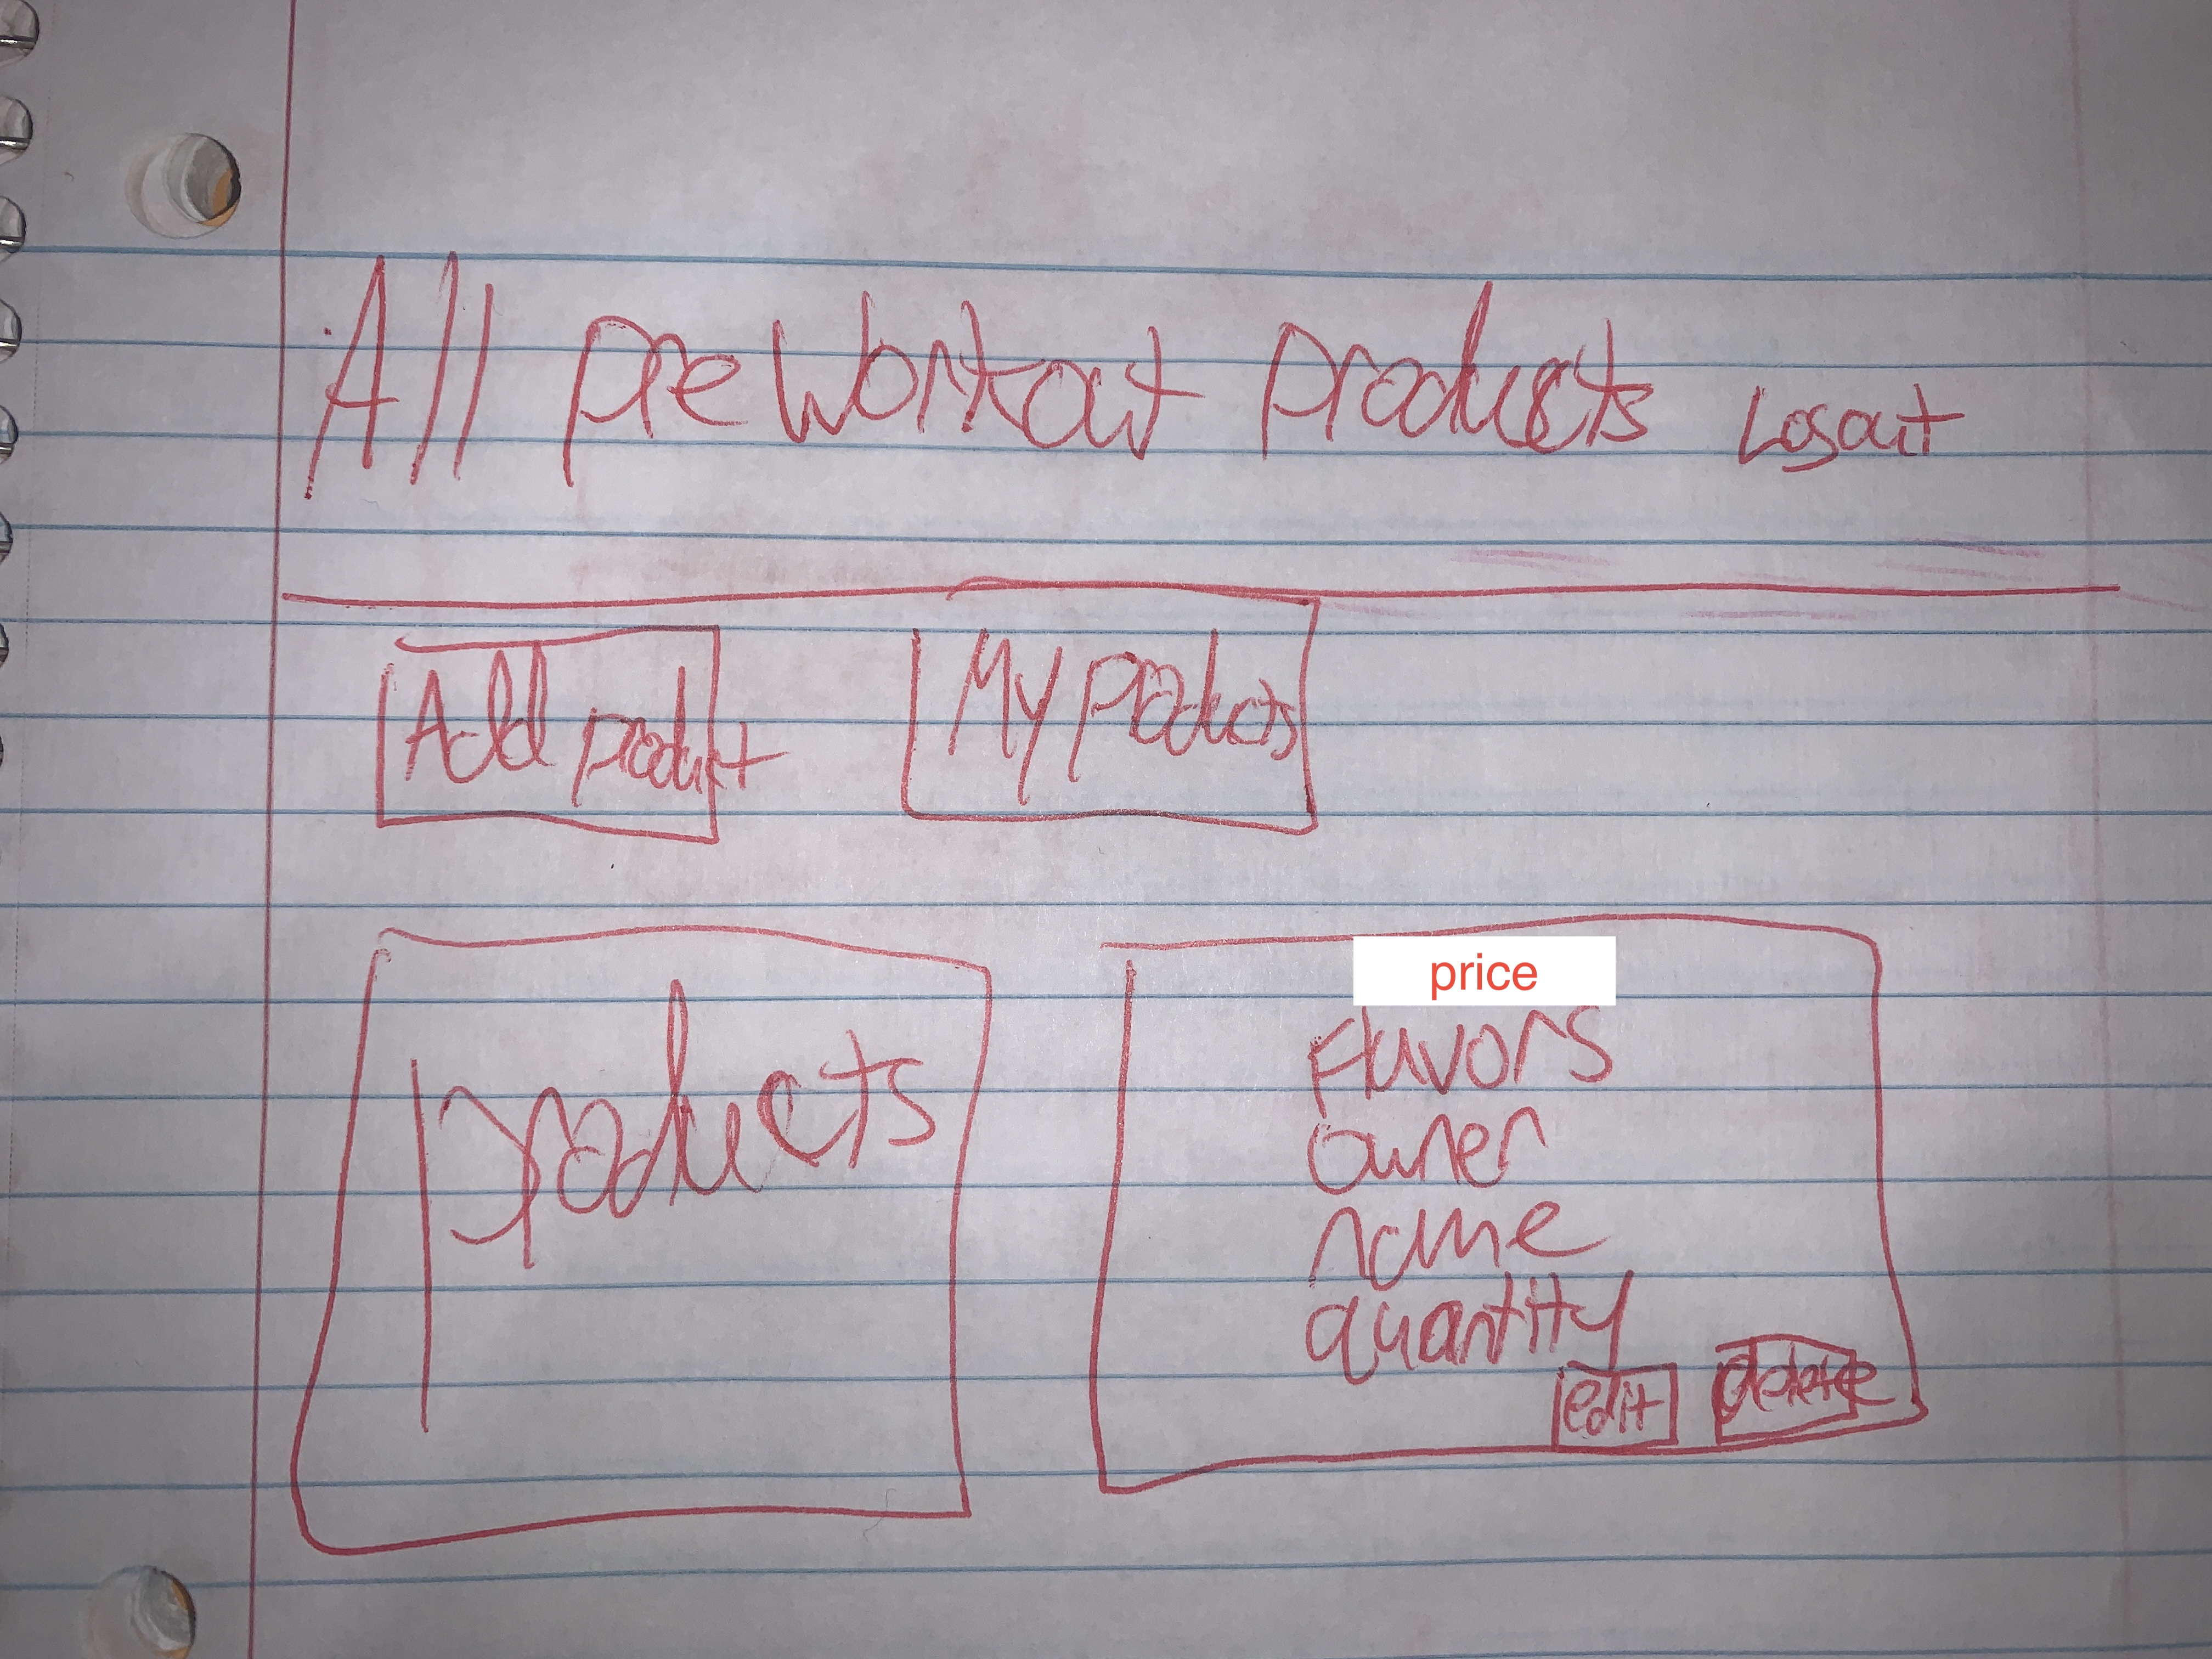 All pre workout products Logout
Add product My products
products
price
Flavors
owner
name
quantity
edit delete